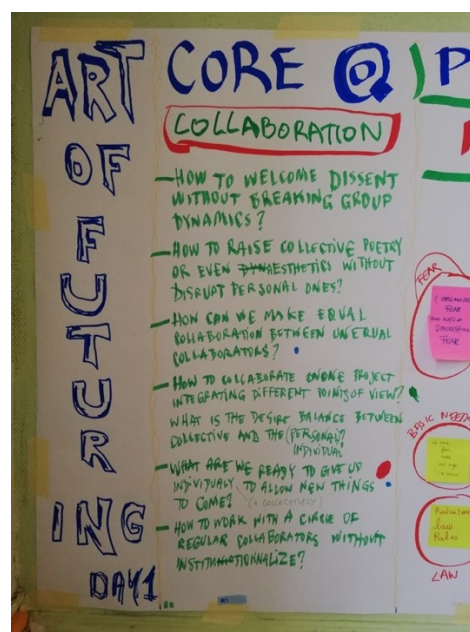 ART
OF
FUTUR
ING
DAY 1
CORE Q
COLLABORATION
- HOW TO WELCOME DISSENT
WITHOUT BREAKING GROUP
DYNAMICS?
- HOW TO RAISE COLLECTIVE POETRY
OR EVEN AESTHETICS WITHOUT
DISRUPT PERSONAL ONES?
- HOW CAN WE MAKE EQUAL
COLLABORATION BETWEEN UNEQUAL
COLLABORATORS?
- HOW TO COLLABORATE ON ONE PROJECT
INTEGRATING DIFFERENT POINTS OF VIEW?
WHAT IS THE DESIRE BALANCE BETWEEN
COLLECTIVE AND THE (PERSONAL)?
INDIVIDUAL
- WHAT ARE WE READY TO GIVE US
INDIVIDUALLY TO ALLOW NEW THINGS
TO COME? (+ COLLECTIVELY)
- HOW TO WORK WITH A CIRCLE OF
REGULAR COLLABORATORS WITHOUT
INSTITUTIONNALIZE?
P
FEAR
FEAR
FEAR
BASIC NEEDS
law
Rules
LAW